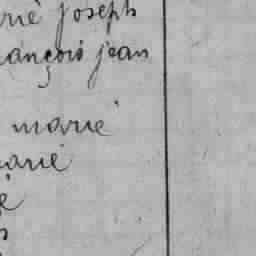 rie joseph
ançois jean
marie
arie
e
s